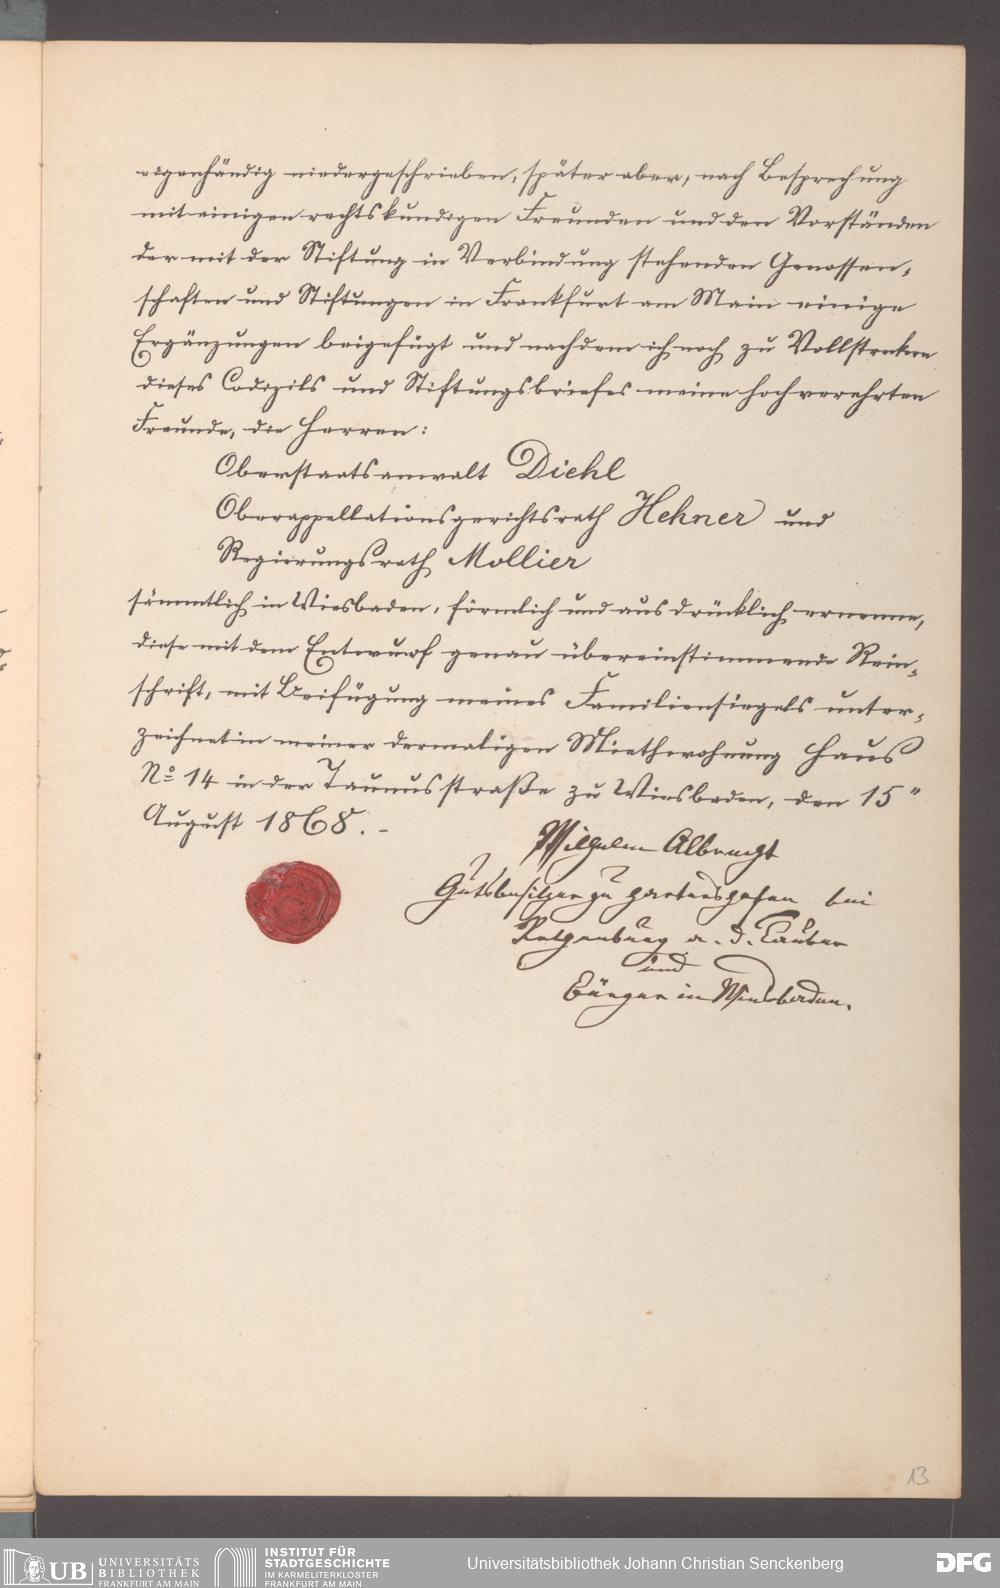 eigenhändig niedergeschrieben, später aber, nach Besprechung
mit einigen rechtskundigen Freunden und den Vorständen
der mit der Stiftung in Verbindung stehenden Genossen-
schaften und Stiftungen in Frankfurt am Main einige
Ergänzungen beigefügt und nachdem ich noch zu Vollstreckern
dieses Codizils und Stiftungsbriefes meine hochverehrten
Freunde, die Herren:
Oberstaatsanwalt Diehl
Oberappellationsgerichtsrath Hehner und
Regierungsrath Mollier
sämmtlich in Wiesbaden, förmlich und ausdrücklich ernenne,
diese mit dem Entwurf genau übereinstimmende Rein-
schrift, mit Beifügung meines Familiensiegels unter-
zeichnet in meiner dermaligen Miethwohnung Haus
No 14 in der Taunusstraße zu Wiesbaden, den 15"
August 1868.-
Wilhelm Albrecht
Gutsbesitzer zu Hartershofen bei
Rothenburg a. d. Tauber
und
Bürger in Wiesbaden.
13
UB UNIVERSITÄTS
BIBLIOTHEK
FRANKFURT AM MAIN
INSTITUT FÜR
STADTGESCHICHTE
IM KARMELITERKLOSTER
FRANKFURT AM MAIN
Universitätsbibliothek Johann Christian Senckenberg
DFG